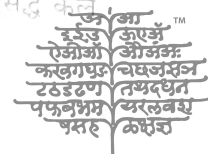 सिद्ध कल
अ आ TM
इईउ ऊएऐ
ऐओऔ औअंअः
कखगघङ चछजझञ
टठडढण तथदधन
पफबभम यरलवश
षसह ळक्षज्ञ